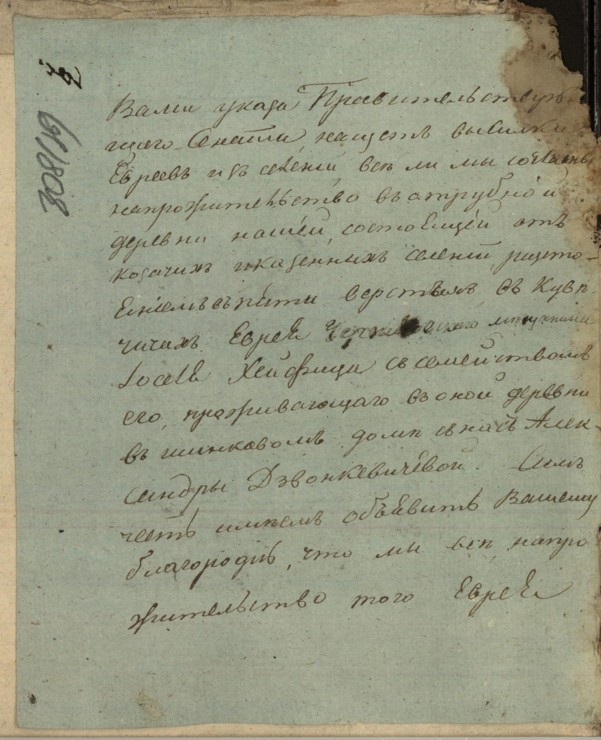 Вами указа Правительствую
щаго Сената насчетъ высылки
Евреевъ изъ селеній, все ли мы согласны
напрожительство въ отрубной
деревни нашей, состоящей отъ
козачихъ и казенныхъ селеній разсто-
еніемъ въ пяти верстахъ, въ Кув
чичахъ Еврея
Іосея Хейфица съ семействомъ
его, проживающаго въ оной деревни
въ шинковомъ доми Алек-
сандры Дзвонкевичевой. Симъ
честь имѣемъ объявить Вашему
благородію, что мы все, напро
жительство того Еврея